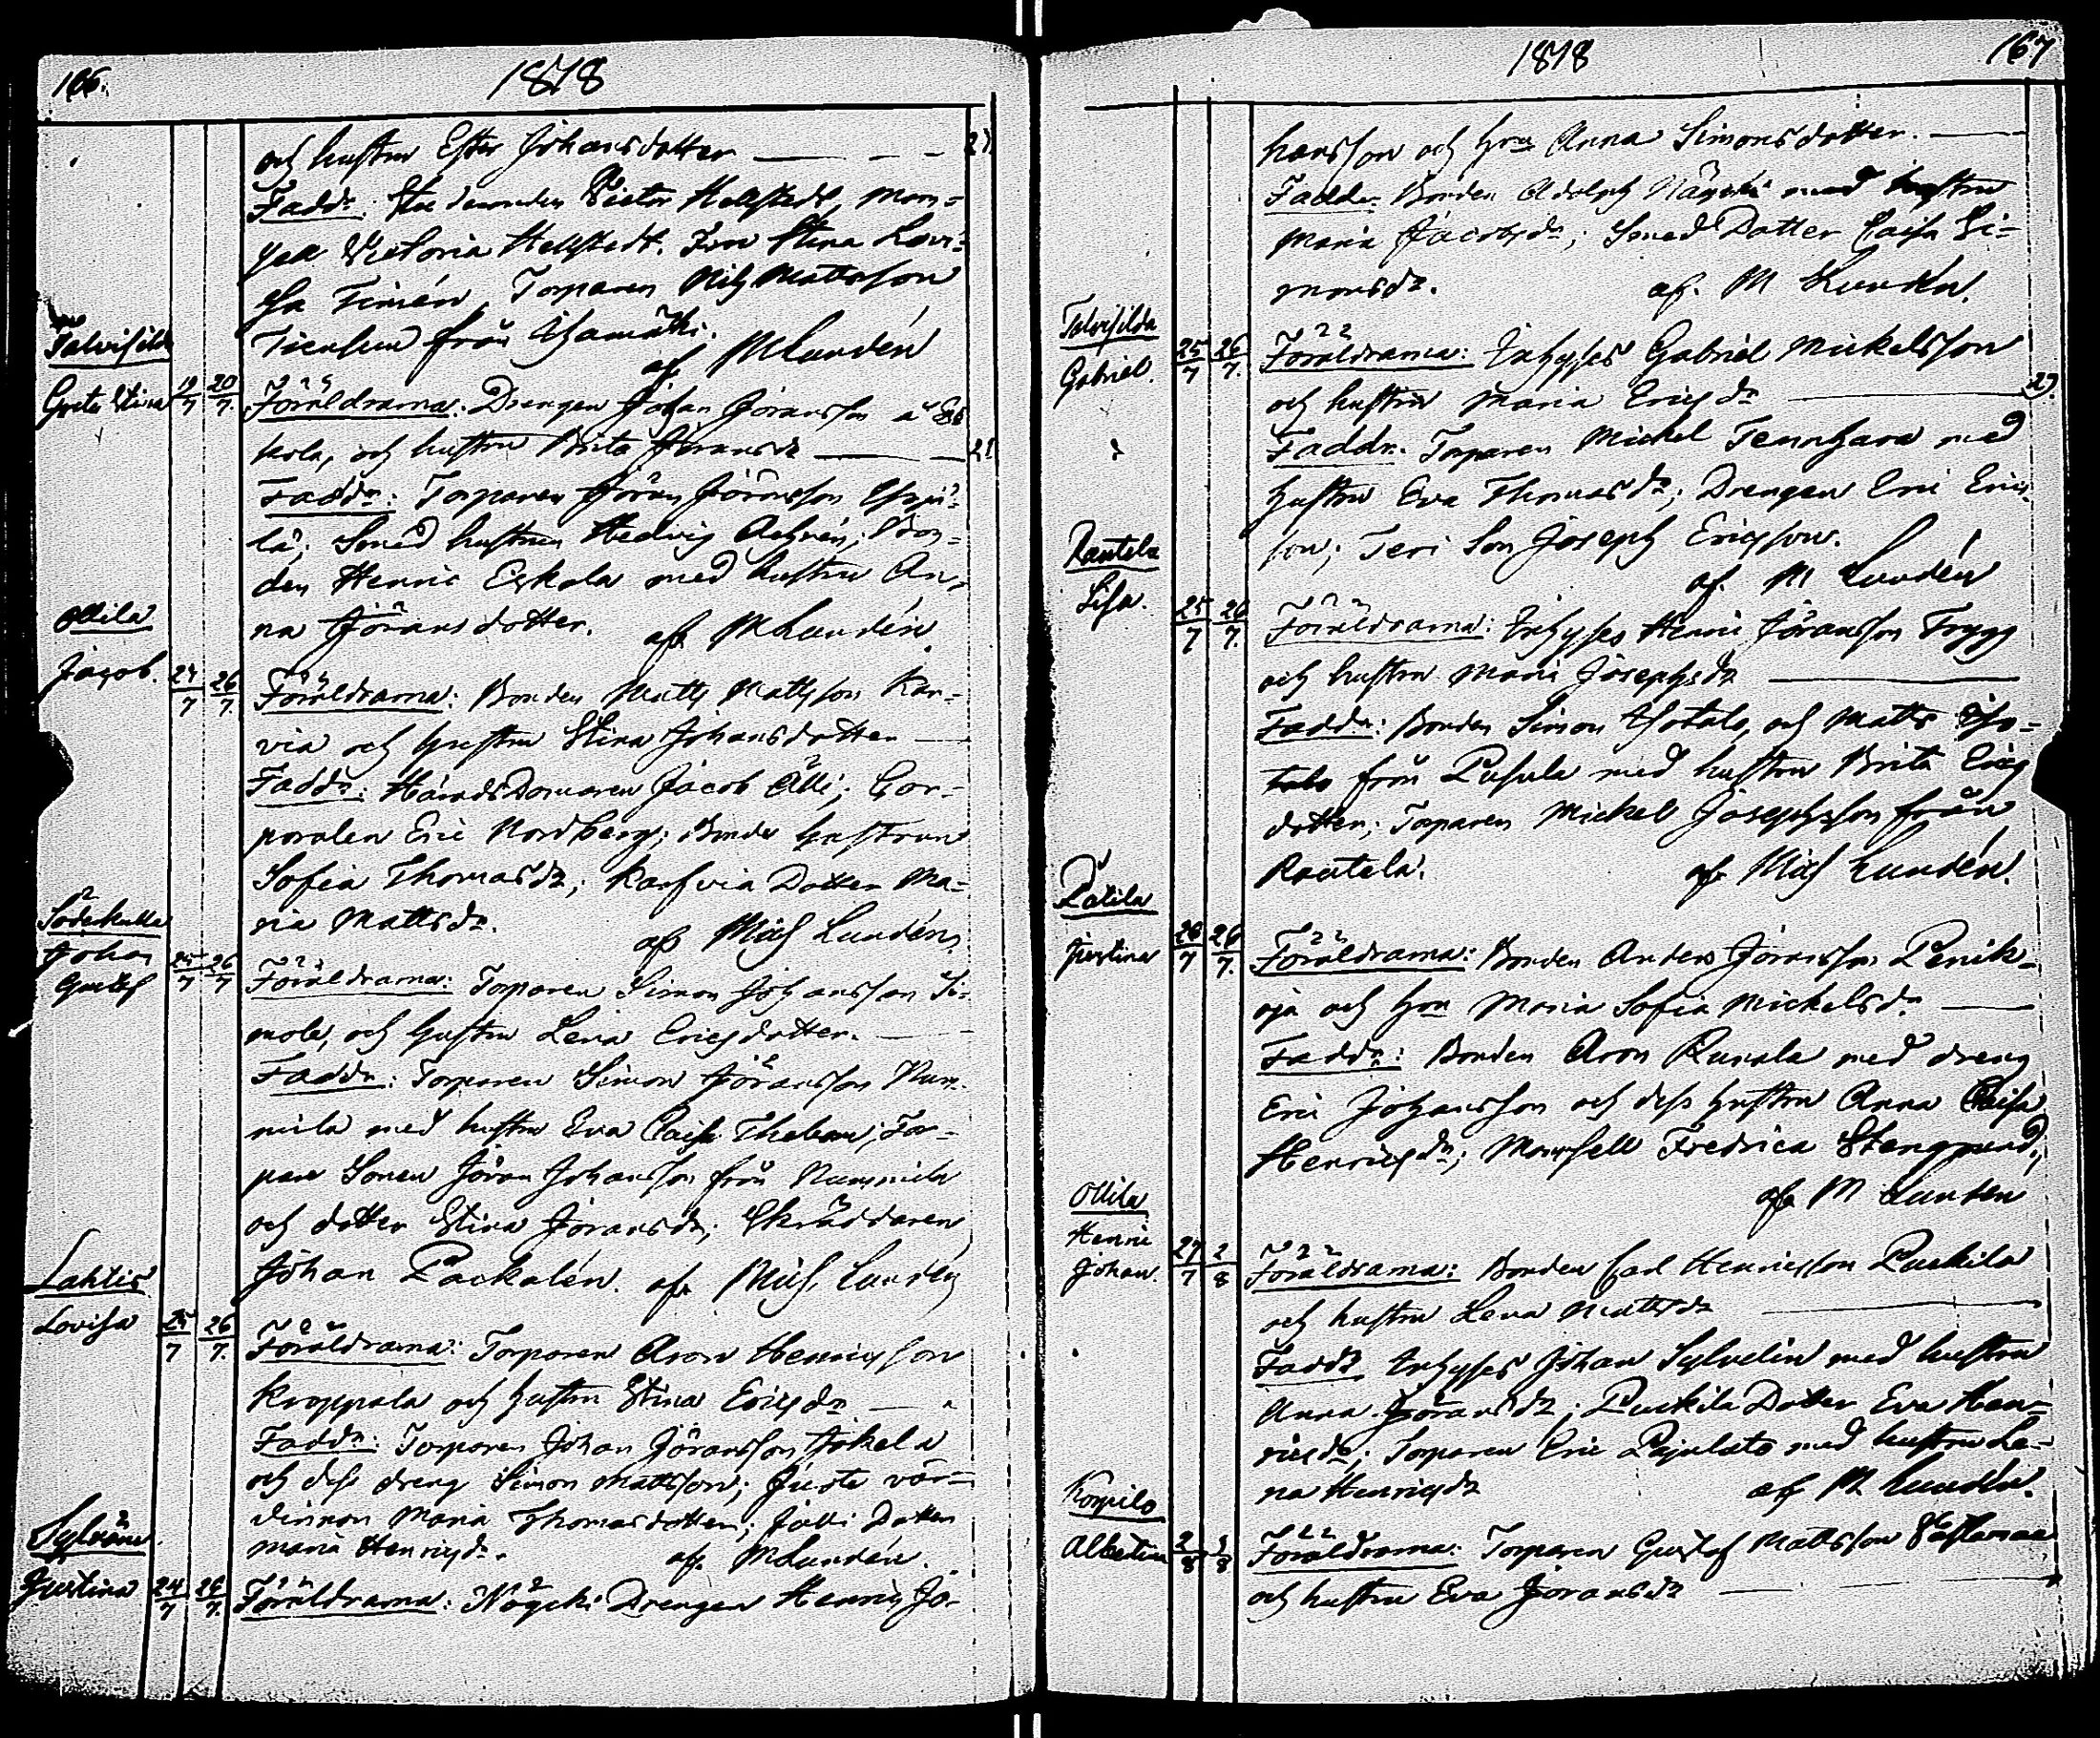 166.
1818
och hustru Ester Johansdotter
Fadd:r: Studeranden Victor Hellstedt, Mam-
sell Victoria Hellstedt. Fru Stina Lovi-
sa Timén, Torparen Nils Mattsson
från
af MLundén
Talvisilda
Greta Stina 19/7 20/7.
Föräldrarna: Drengen Johan Jöransson å
kola, och hustru Brita Jöransd:r 21
Fadd:r: Torparen Jöran Jöransson
lä; Smed hustrun Hedvig; Bon-
den Henric Eskola med hustru An-
na Jöransdotter. af MLundén.
Ollila
Jacob. 24/7 26/7.
Föräldrarna: Bonden Matts Mattsson Kar-
via och hustru Stina Johansdotter
Fadd:r: HäradsDomaren Jacob Älli; Cor-
poralen Eric Nordberg; Bonde hustrun
Sofia Thomasd:r; Karfvia Dotter Ma-
ria Mattsd:r. af Mich Lundén.
Söderkulla
Johan
Gustaf 25/7 26/7
Föräldrarna: Torparen Simon Johansson Si-
mola, och hustru Lena Ericsdotter.
Fadd:r: Torparen Simon Jöransson Num-
mila med hustru Eva Caisa; Tor-
pare Sonen Jöran Johansson från Nummila
och dotter Stina Jöransd:r; Skräddaren
Johan Packalén. af Mich. Lundén
Lahtis
Lovisa 25/7 26/7.
Föräldrarna: Torparen Aron Henricsson
Kroppala och hustru Stina Ericsd:r
Fadd:r: Torparen Johan Jöransson Jokela
och dess dreng Simon Mattsson; Juste vär-
dinnan Maria Thomasdotter; Jalli Dotter
Maria Henricsd:r. af MLundén.
Sylvänä.
Justina 24/7 26/7.
Föräldrarna: Näyeki Drengen Henric Jo-
1818
167
hansson och h:ru Anna Simonsdotter.
Fadd:r Bonden Adolph med hustru
Maria Jacobsd:r; Smed Dotter Caisa Si-
monsd:r. af. M Lundén.
Talvisilda
Gabriel. 25/7 26/7.
Föräldrarna: Inhyses Gabriel Mickelsson
och hustru Maria Ericsd:r 29.
Fadd:r. Torparen Mickel med
hustru Eva Thomasd:r; Drengen Eric Erics-
son; Teri Son Joseph Ericsson.
af. M Lundén
Rautela
Lisa. 25/7 26/7.
Föräldrarna: Inhyses Henric Jöransson Trygg
och hustru Maria Josephsd:r
Fadd:r: Bonden Simon Isotalo, och Matts Iso-
talo från Pusula med hustru Brita Erics
dotter; Torparen Mickel Josephsson från
Rautela. af Mich Lundén.
Patila
Justina 26/7 26/7.
Föräldrarna: Bonden Anders Jöransson Penik-
oja och h:ru Maria Sofia Mickelsd:r
Fadd:r: Bonden Aron Runala med dreng
Eric Johansson och dess hustru Anna Caisa
Henricsd:r; Mamsell Fredrica
af M Lundén
Ollila
Henric
Johan. 27/7 2/8
Föräldrarna: Bonden Carl Henricsson Puckila
och hustru Lena Mattsd:r
Fadd:r Inhyses Johan Sylvelin med hustru
Anna Jöransd:r; Puckila Dotter Eva Hen-
ricsd:r; Torparen Eric med hustru Le-
na Henricsd:r af M Lundén.
Korpilo
Albertina 2/8 3/8
Föräldrarna: Torparen Gustaf Mattsson
och hustru Eva Jöransd:r